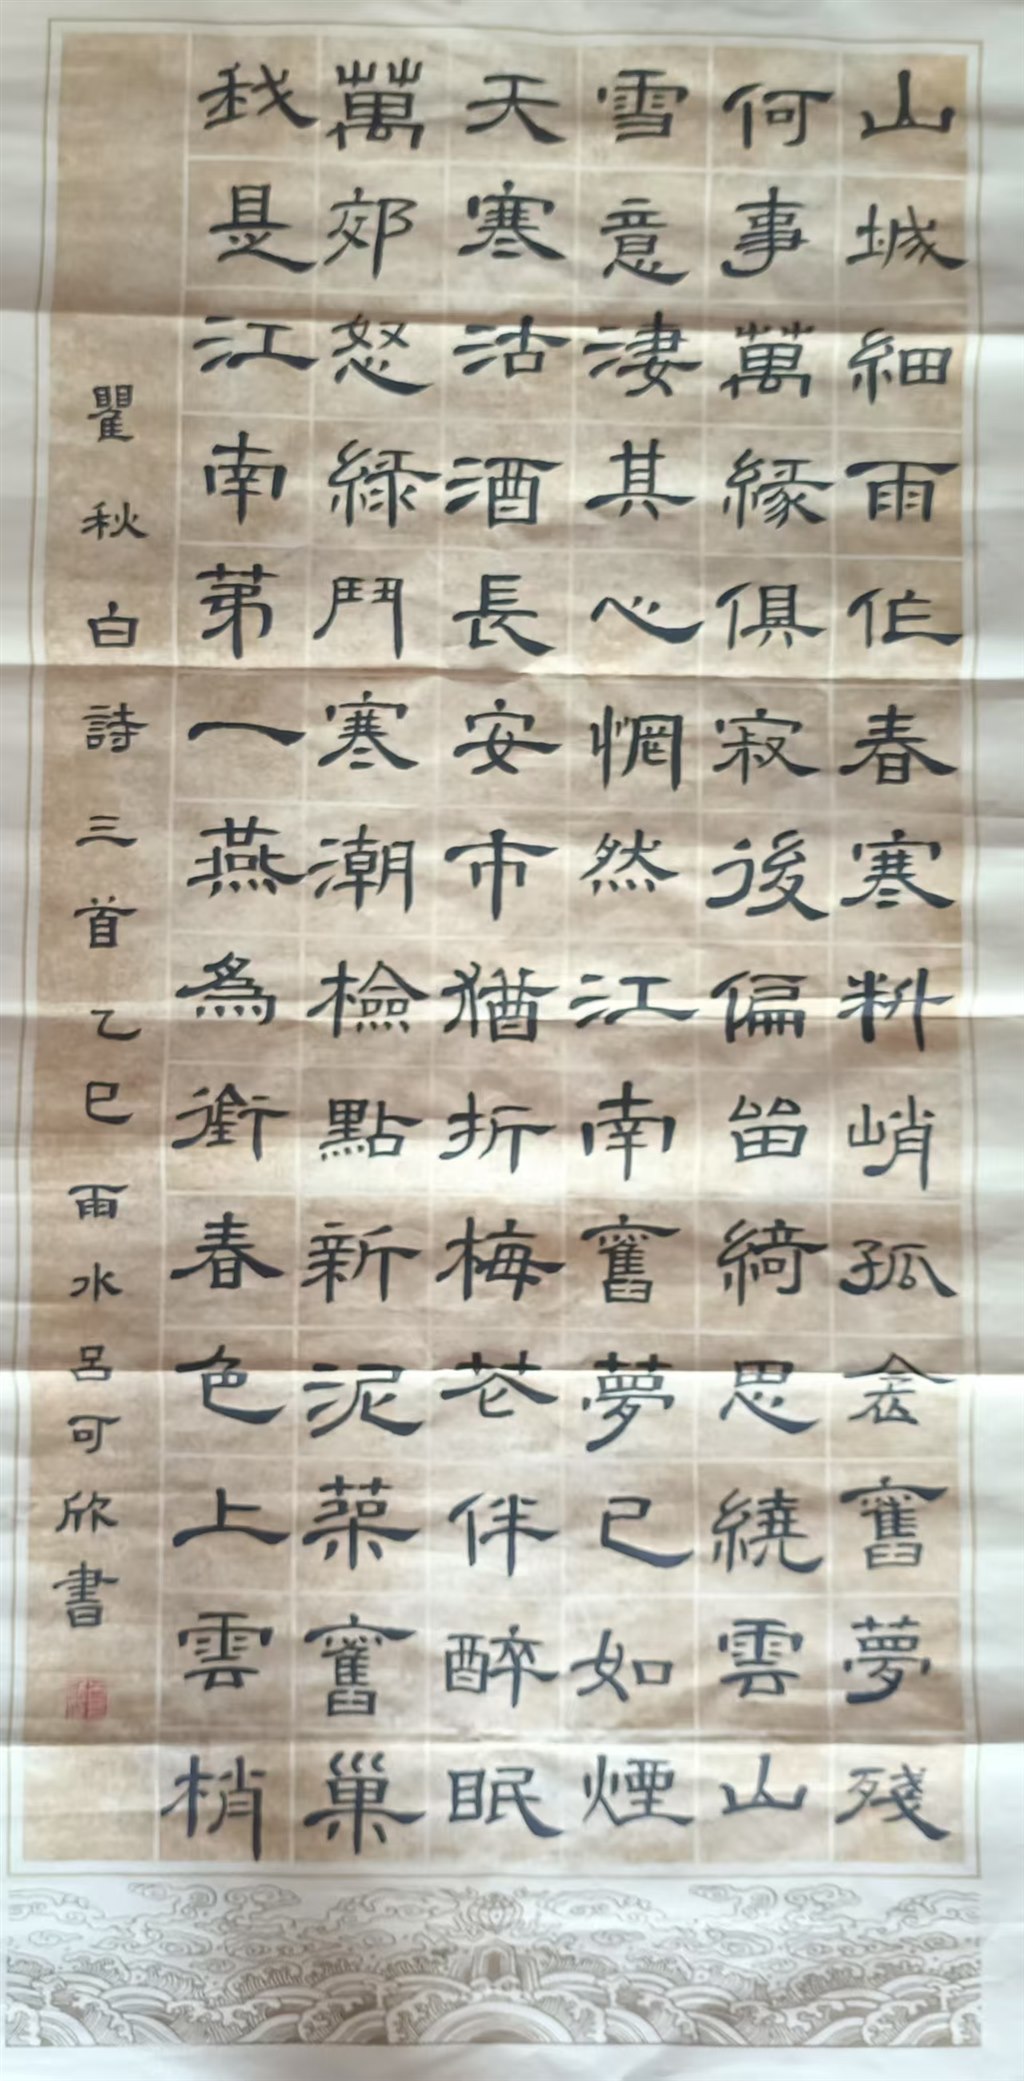 山城細雨作春寒料峭孤衾舊夢殘
何事萬緣俱寂後偏留綺思繞雲山
雪意淒其心惘然江南舊夢已如煙
天寒沽酒長安市猶折梅花伴醉眠
萬郊怒綠鬥寒潮檢點新泥築舊巢
我是江南第一燕為銜春色上雲梢
瞿秋白詩三首乙巳雨水呂可欣書